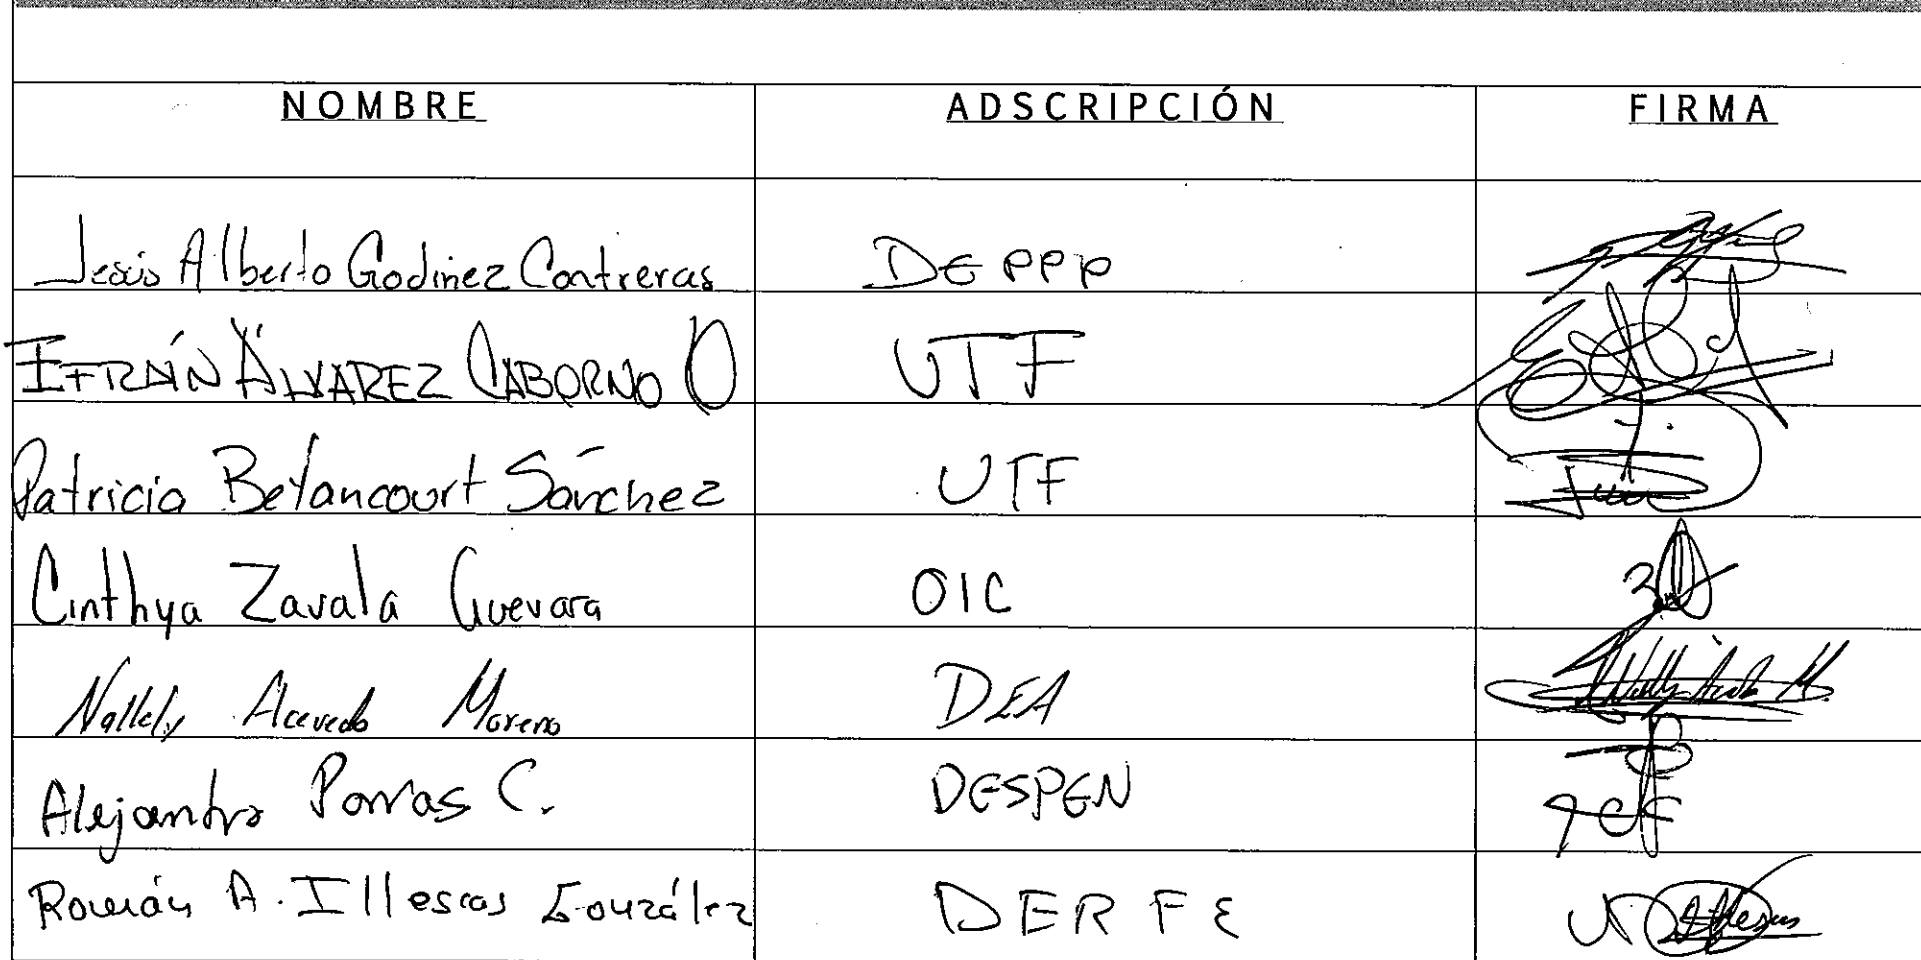 NOMBRE ADSCRIPCIÓN FIRMA
Jesús Alberto Godínez Contreras DEPPP
ÁLVAREZ UTF
Patricia Betancourt Sánchez UTF
Cinthya Zavala Guevara OIC
Nallely Acevedo Moreno DEA
Alejandro Porras C. DESPEN
Román A. Illescas González DERFE